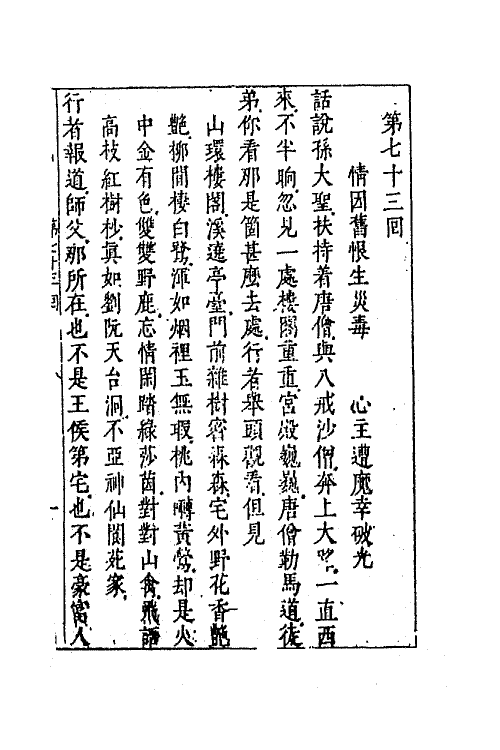 第七十三回
情因舊恨生災毒　心主遭魔幸破光
話說孫大聖扶持着唐僧與八戒沙僧奔上大路一直西
來不半晌忽見一處樓閣重重宮殿巍巍唐僧勒馬道徒
弟你看那是箇甚麼去處行者舉頭觀看但見
山環樓閣溪遶亭臺門前雜樹密森森宅外野花香艷
艷柳間棲白鷺渾如烟裡玉無瑕桃內囀黃鶯却是火
中金有色雙雙野鹿忘情閑踏綠莎茵對對山禽飛語
高枝紅樹杪真如劉阮天台洞不亞神仙閬苑家
行者報道師父那所在也不是王侯第宅也不是豪富人